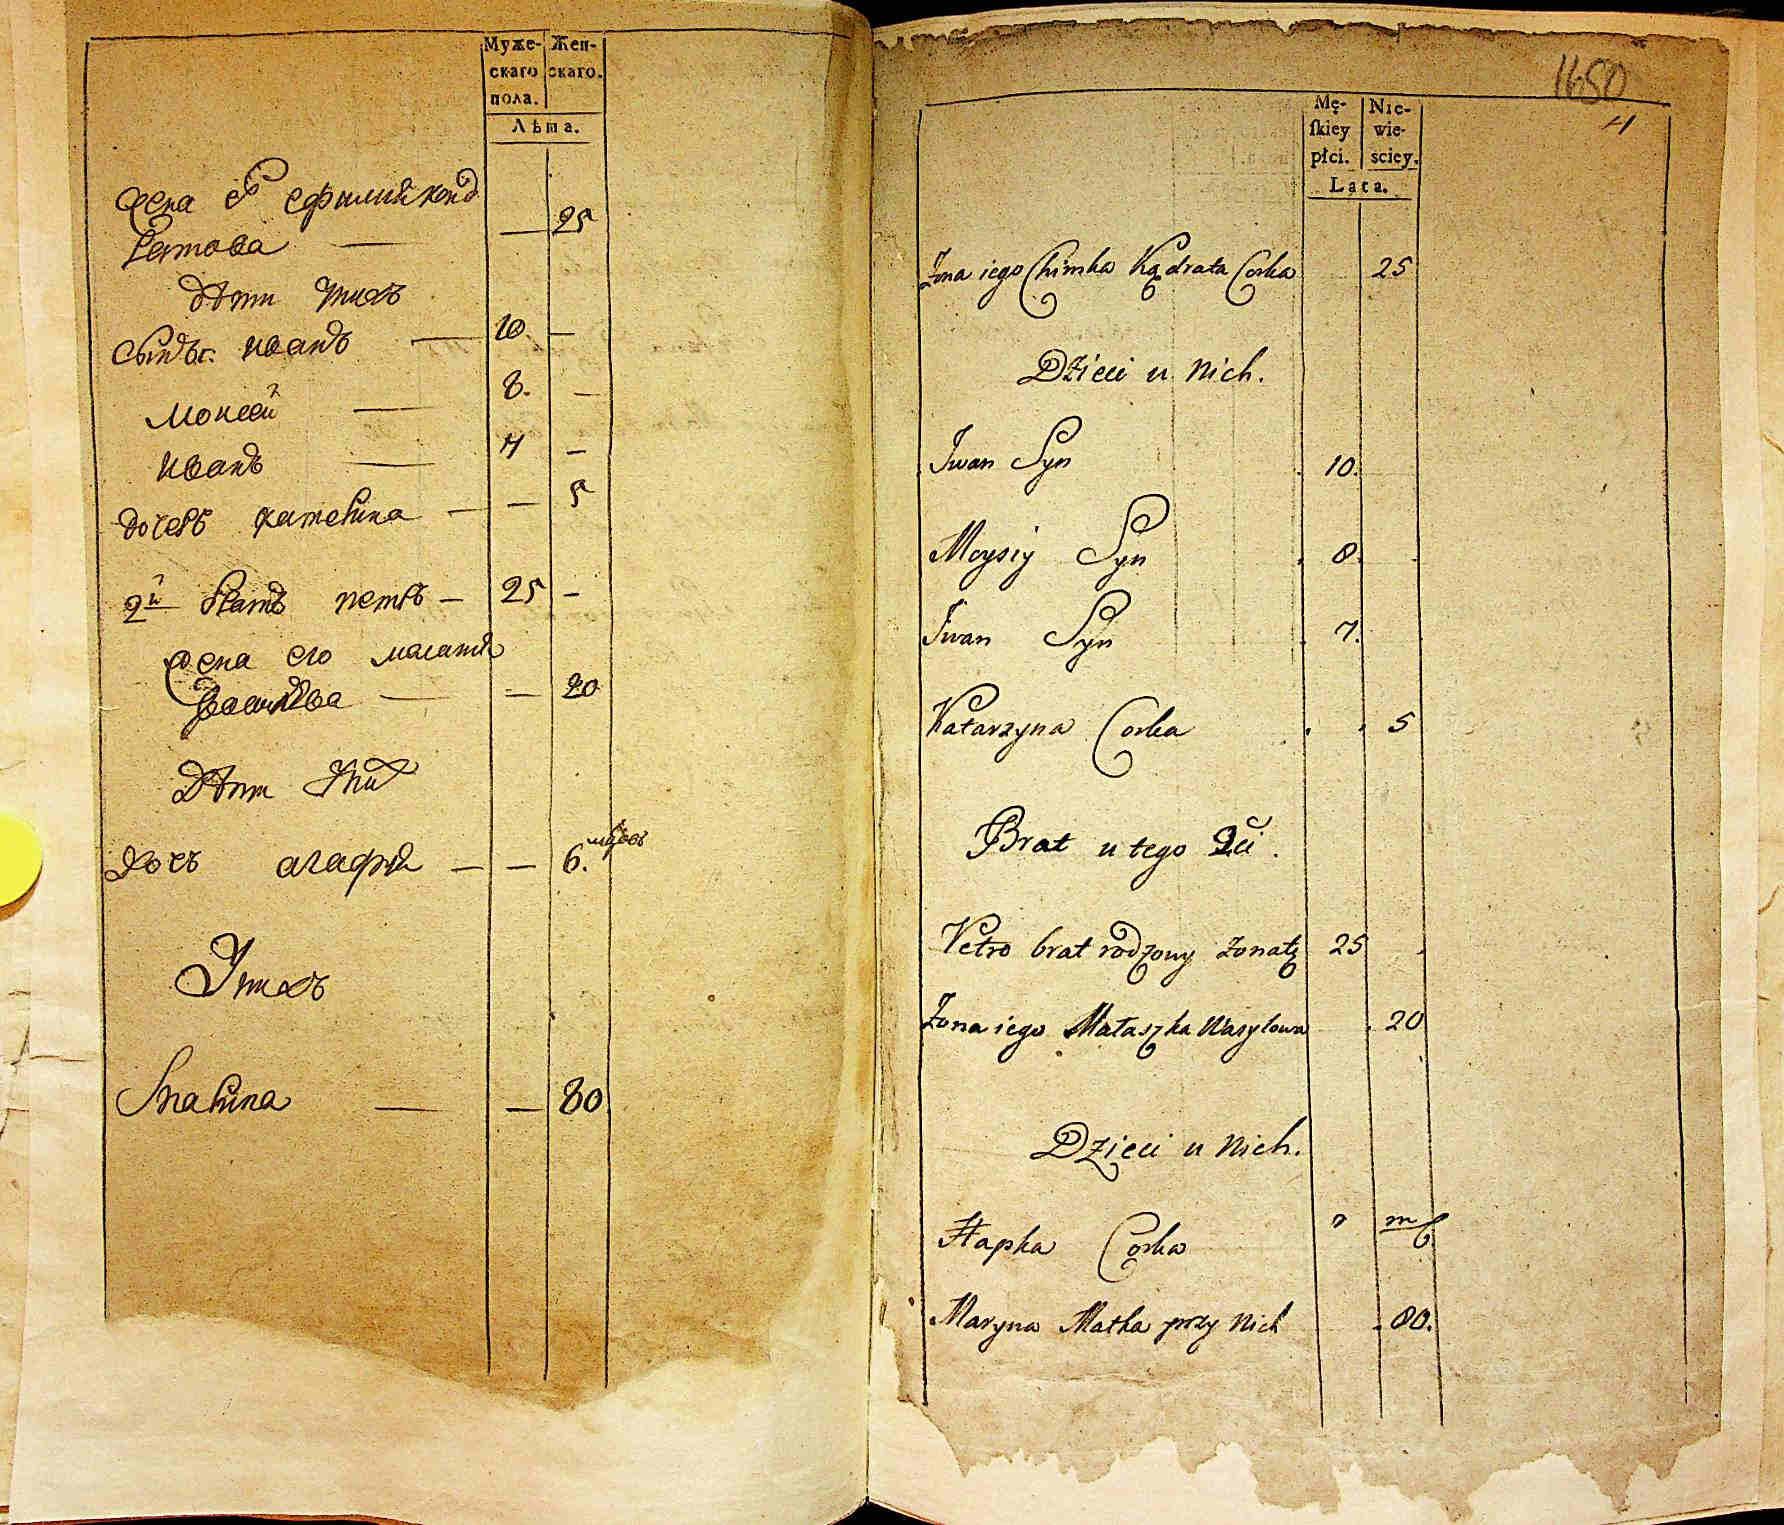 Муже-
скаго
пола.
Жен-
скаго.
Лѣта.
жена его ефимия конд
ратова — — 25
дѣти ихъ
сынъ: иванъ — 10. —
моисей — 8. —
иванъ — 7 —
дочерь катерина — — 5
2й братъ петръ — 25 —
жена его маланя
— — 20
Дѣти
дочь агафия — — 6.
У нихъ
марина — — 80
1650
4
Mę-
skiey
płci.
Nie-
wie-
sciey.
Lata.
Zona iego Chimka Kądrata Corka 25
Dzieci u Nich.
Iwan Syn 10.
Moysiy Syn 8.
Iwan Syn 7.
Katarzyna Corka 5
Brat u tego 2ci.
Petro brat rodzony żonaty 25
Zona iego Małaszka Wasylowa 20
Dzieci u Nich.
Hapka Corka m 6.
Maryna Matka przy Nich 80.